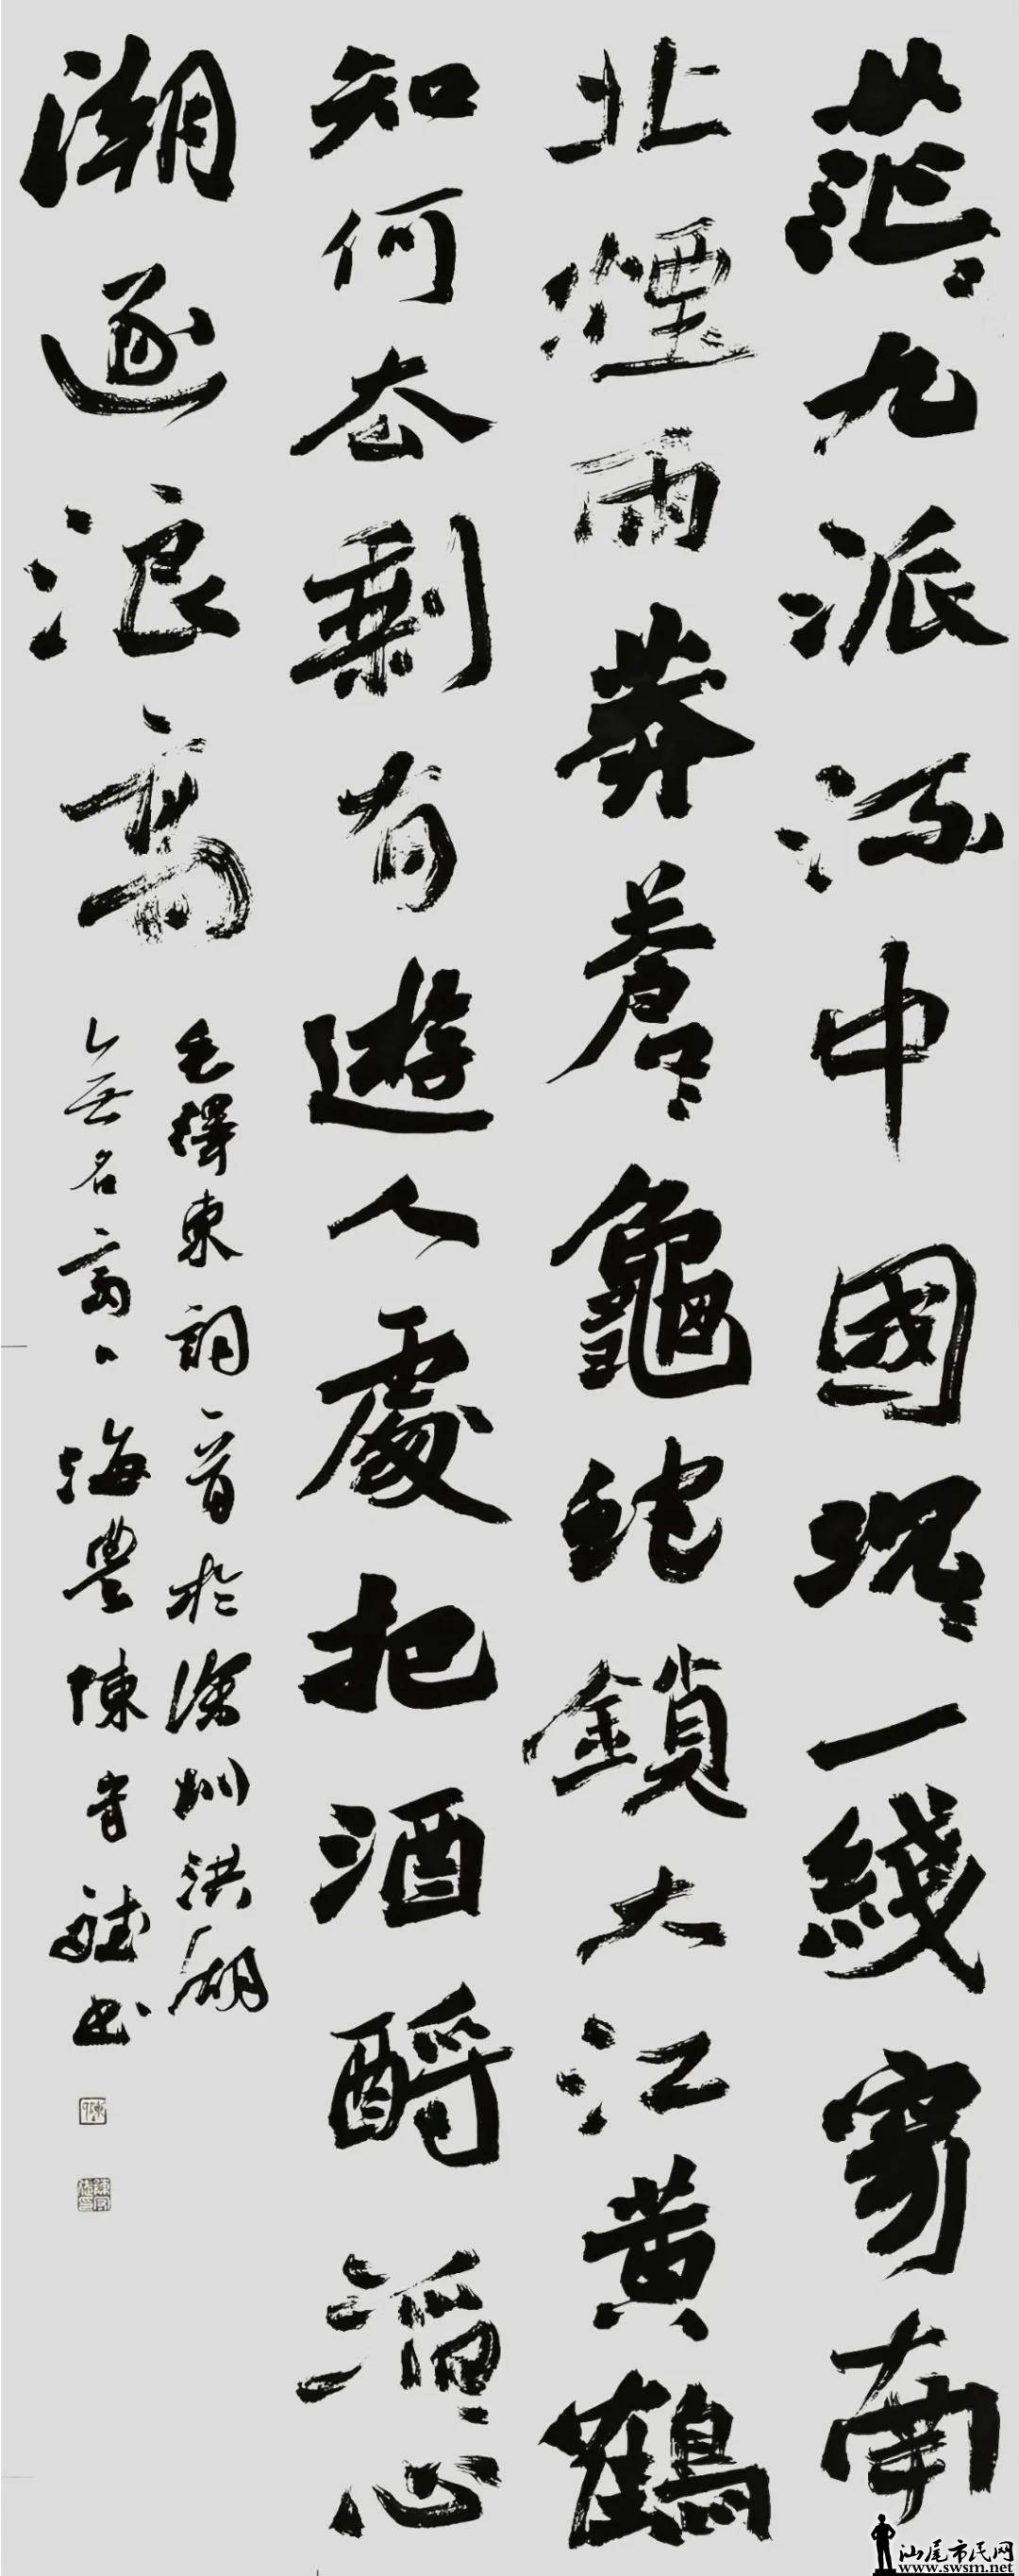 茫々九派流中國沉々一綫穿南
北煙雨莽蒼々龜蛇鎖大江黃鶴
知何去剩有遊人處把酒酹滔々心
潮逐浪高
毛澤東詞一首於深圳洪湖
無名齋海豐陳書
汕尾市民网
www.swsm.net